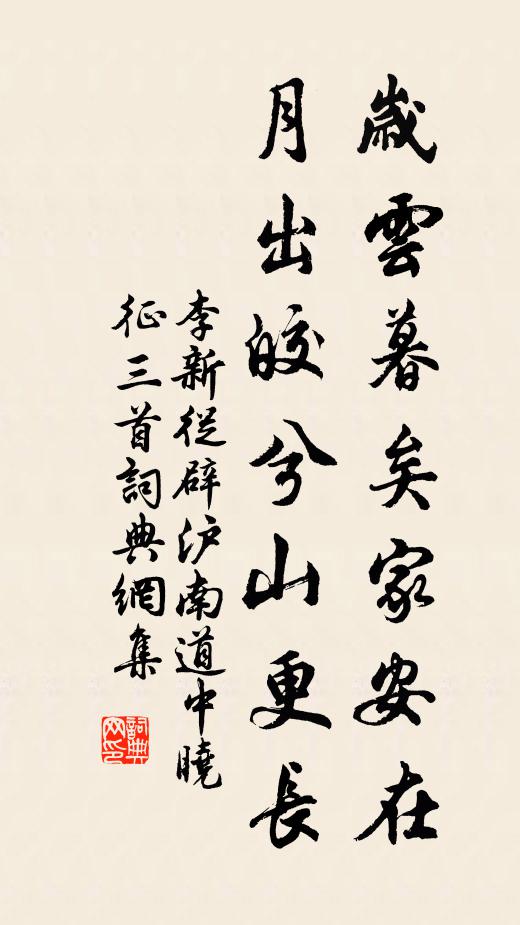 歲雲暮矣家安在
月出皎兮山更長
李新從辟沪南道中曉
征三首詞典網集
詞典
网印